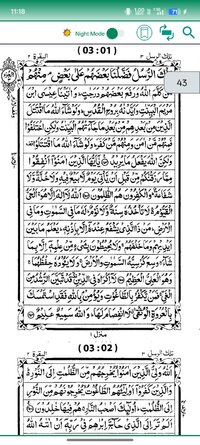 11:18
71
Night Mode
البقرة ٢
( 03 : 01 )
تلك الرسل ٣
43
تِلْكَ الرُّسُلُ فَضَّلْنَا بَعْضَهُمْ عَلٰى بَعْضٍ مِنْهُمْ
مَّنْ كَلَّمَ اللّٰهُ وَرَفَعَ بَعْضَهُمْ دَرَجٰتٍ وَاٰتَيْنَا عِيْسَى ابْنَ
مَرْيَمَ الْبَيِّنٰتِ وَاَيَّدْنٰهُ بِرُوْحِ الْقُدُسِ وَلَوْ شَآءَ اللّٰهُ مَا اقْتَتَلَ
الَّذِيْنَ مِنْ بَعْدِهِمْ مِّنْ بَعْدِ مَا جَآءَتْهُمُ الْبَيِّنٰتُ وَلٰكِنِ اخْتَلَفُوْا
فَمِنْهُمْ مَّنْ اٰمَنَ وَمِنْهُمْ مَّنْ كَفَرَ وَلَوْ شَآءَ اللّٰهُ مَا اقْتَتَلُوْا
وَلٰكِنَّ اللّٰهَ يَفْعَلُ مَا يُرِيْدُ يٰٓاَيُّهَا الَّذِيْنَ اٰمَنُوْٓا اَنْفِقُوْا
مِمَّا رَزَقْنٰكُمْ مِّنْ قَبْلِ اَنْ يَّاْتِيَ يَوْمٌ لَّا بَيْعٌ فِيْهِ وَلَا خُلَّةٌ وَّلَا
شَفَاعَةٌ وَالْكٰفِرُوْنَ هُمُ الظّٰلِمُوْنَ اَللّٰهُ لَآ اِلٰهَ اِلَّا هُوَ اَلْحَيُّ
الْقَيُّوْمُ لَا تَاْخُذُهٗ سِنَةٌ وَّلَا نَوْمٌ لَهٗ مَا فِي السَّمٰوٰتِ وَمَا فِي
الْاَرْضِ مَنْ ذَا الَّذِيْ يَشْفَعُ عِنْدَهٗٓ اِلَّا بِاِذْنِهٖ يَعْلَمُ مَا بَيْنَ
اَيْدِيْهِمْ وَمَا خَلْفَهُمْ وَلَا يُحِيْطُوْنَ بِشَيْءٍ مِّنْ عِلْمِهٖٓ اِلَّا بِمَا
شَآءَ وَسِعَ كُرْسِيُّهُ السَّمٰوٰتِ وَالْاَرْضَ وَلَا يَئُوْدُهٗ حِفْظُهُمَا
وَهُوَ الْعَلِيُّ الْعَظِيْمُ لَآ اِكْرَاهَ فِي الدِّيْنِ قَدْ تَّبَيَّنَ الرُّشْدُ مِنَ
الْغَيِّ فَمَنْ يَّكْفُرْ بِالطَّاغُوْتِ وَيُؤْمِنْ بِاللّٰهِ فَقَدِ اسْتَمْسَكَ
بِالْعُرْوَةِ الْوُثْقٰى لَا انْفِصَامَ لَهَا وَاللّٰهُ سَمِيْعٌ عَلِيْمٌ
منزل ١
البقرة ٢
( 03 : 02 )
تلك الرسل ٣
اَللّٰهُ وَلِيُّ الَّذِيْنَ اٰمَنُوْا يُخْرِجُهُمْ مِّنَ الظُّلُمٰتِ اِلَى النُّوْرِ
وَالَّذِيْنَ كَفَرُوْٓا اَوْلِيٰٓئُهُمُ الطَّاغُوْتُ يُخْرِجُوْنَهُمْ مِّنَ النُّوْرِ
اِلَى الظُّلُمٰتِ اُولٰٓئِكَ اَصْحٰبُ النَّارِ هُمْ فِيْهَا خٰلِدُوْنَ
اَلَمْ تَرَ اِلَى الَّذِيْ حَآجَّ اِبْرٰهٖمَ فِيْ رَبِّهٖٓ اَنْ اٰتٰىهُ اللّٰهُ